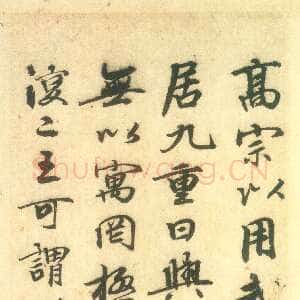 高宗以用
居九重日與
無以寓罔極
復二王可謂